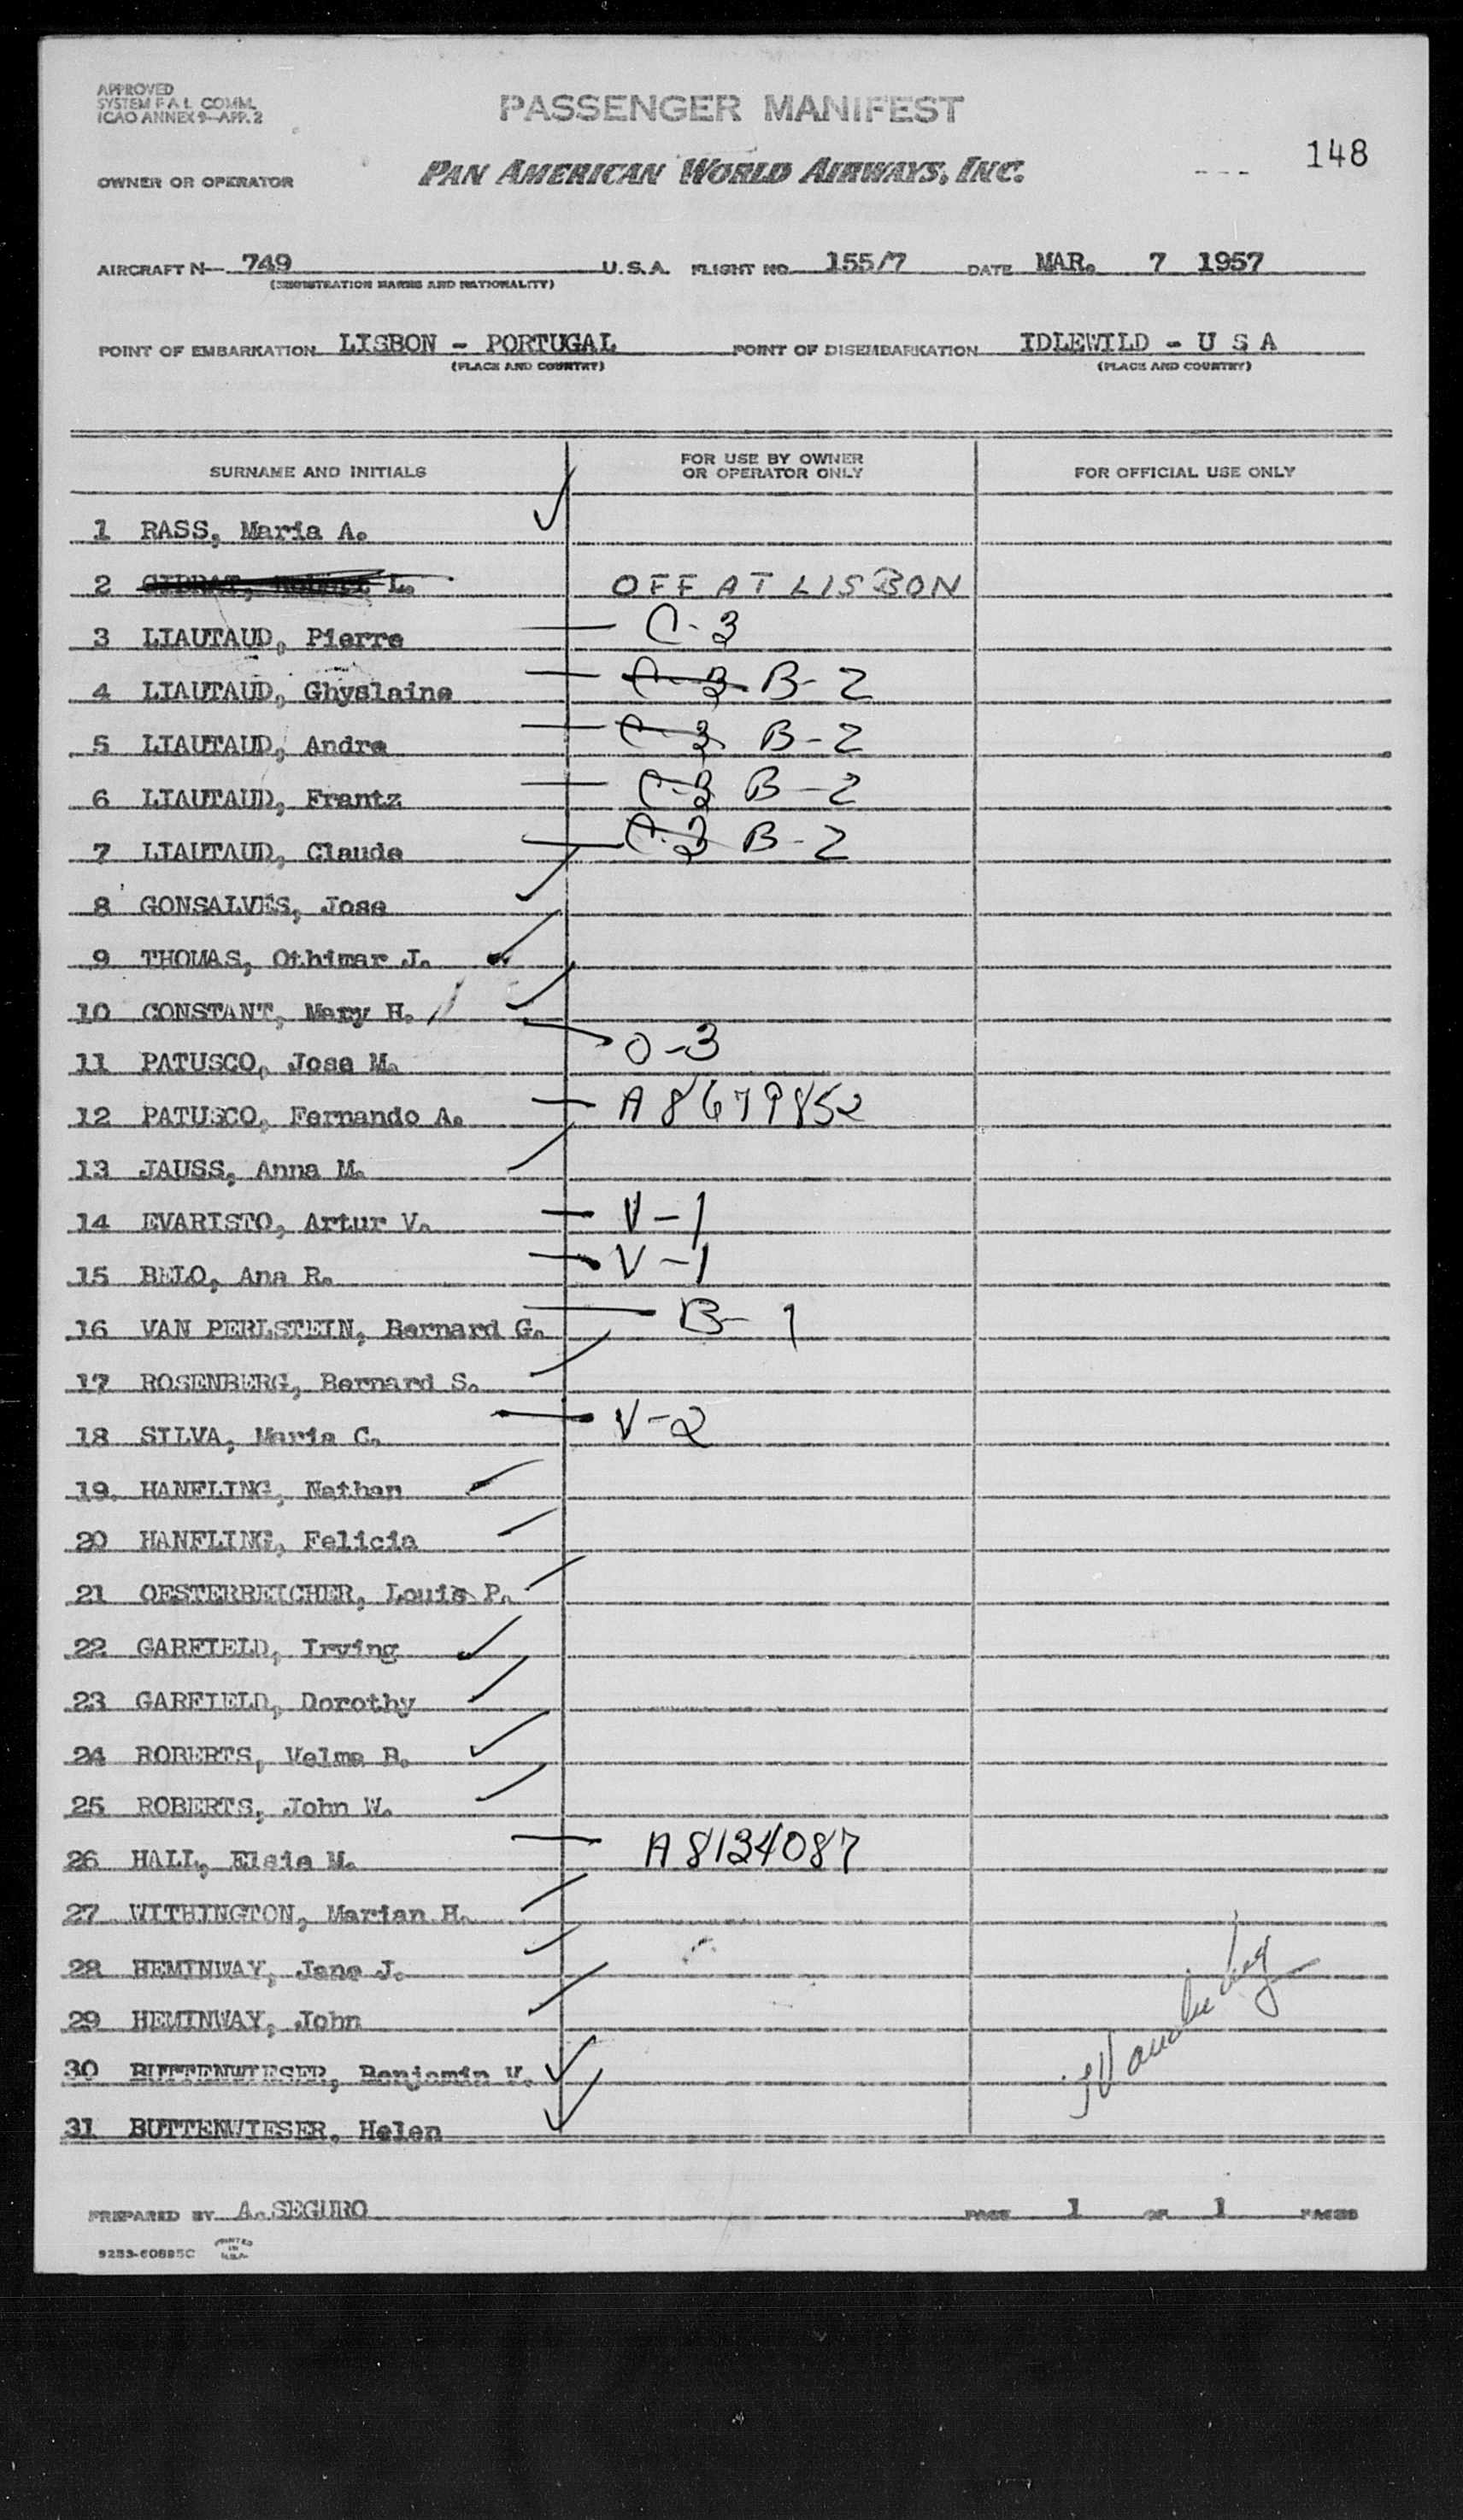 APPROVED
SYSTEM F A L COMM.
ICAO ANNEX 9—APP. 2
PASSENGER MANIFEST
148
OWNER OR OPERATOR PAN AMERICAN WORLD AIRWAYS, INC. - - -
AIRCRAFT N— 749 U.S.A. FLIGHT NO. 155/7 DATE MAR. 7 1957
(REGISTRATION MARKS AND NATIONALITY)
POINT OF EMBARKATION LISBON - PORTUGAL POINT OF DISEMBARKATION IDLEWILD - U S A
(PLACE AND COUNTRY) (PLACE AND COUNTRY)
SURNAME AND INITIALS FOR USE BY OWNER OR OPERATOR ONLY FOR OFFICIAL USE ONLY
1 RASS, Maria A. ✓
2 L. OFF AT LISBON
3 LIAUTAUD, Pierre — C-3
4 LIAUTAUD, Ghyslaine — C-3 B-2
5 LIAUTAUD, Andre — C-3 B-2
6 LIAUTAUD, Frantz — C-3 B-2
7 LIAUTAUD, Claude — C-3 B-2
8 GONSALVES, Jose ✓
9 THOMAS, Othimar J. ✓
10 CONSTANT, Mary H. ✓
11 PATUSCO, Jose M. — O-3
12 PATUSCO, Fernando A. — A8679852
13 JAUSS, Anna M.
14 EVARISTO, Artur V. — V-1
15 BELO, Ana R. — V-1
16 VAN PERLSTEIN, Bernard G. — B-1
17 ROSENBERG, Bernard S.
18 SILVA, Maria C. — V-2
19 HANFLING, Nathan ✓
20 HANFLING, Felicia
21 OESTERREICHER, Louis P.
22 GARFIELD, Irving ✓
23 GARFIELD, Dorothy ✓
24 ROBERTS, Velma B. ✓
25 ROBERTS, John W.
26 HALL, Elsie M. — A8134087
27 WITHINGTON, Marian H.
28 HEMINWAY, Jane J.
29 HEMINWAY, John
30 BUTTENWIESER, Benjamin V. ✓
31 BUTTENWIESER, Helen ✓
PREPARED BY A. SEGURO PAGE 1 OF 1 PAGES
9253-60885C PRINTED IN U.S.A.